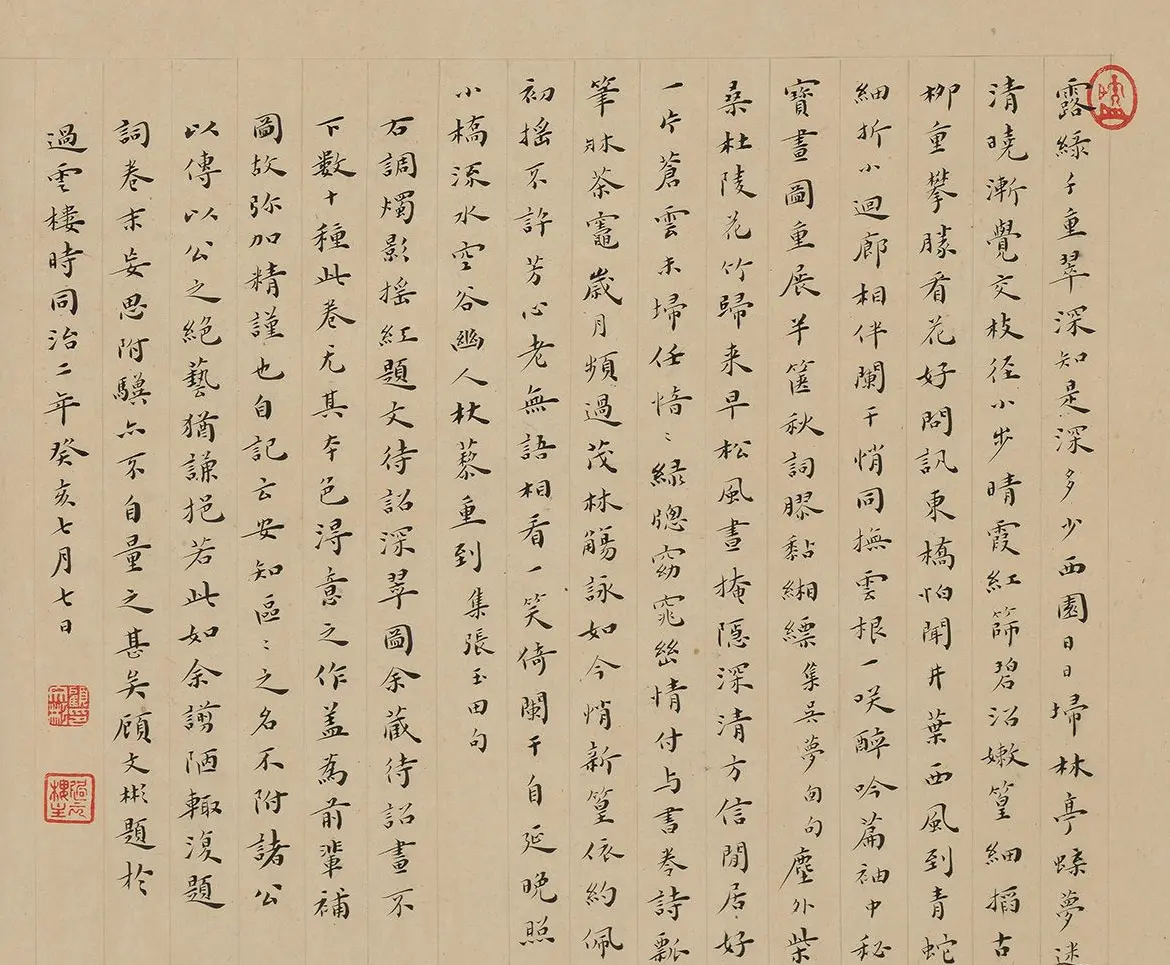 露綠千重翠深知是深多少西園日日埽林亭蝶夢迷
清曉漸覺交枝徑小步晴霞紅篩碧沼嫩篁細搯古
柳重攀勝看花好問訊東橋怕聞井葉西風到青蛇
細折小迴廊相伴闌干悄同撫雲根一咲醉吟篇袖中秘
寶畫圖重展半篋秋詞膠黏緗縹集吳夢窗句塵外柴
桑杜陵花竹歸来早松風晝掩隱深清方信閒居好
一片蒼雲未埽任愔〻綠窗窈窕幽情付与書卷詩瓢
筆牀茶竈歲月頻過茂林觴詠如今悄新篁依約佩
初搖不許芳心老無語相看一笑倚闌干自延晚照
小橋流水空谷幽人杖藜重到集張玉田句
右調燭影搖紅題文待詔深翠圖余藏待詔畫不
下數十種此卷尤其本色得意之作蓋為前輩補
圖故弥加精謹也自記云安知區〻之名不附諸公
以傳以公之絕藝猶謙挹若此如余謭陋輒復題
詞卷末妄思附驥亦不自量之甚矣顧文彬題於
過雲樓時同治二年癸亥七月七日
過雲樓主